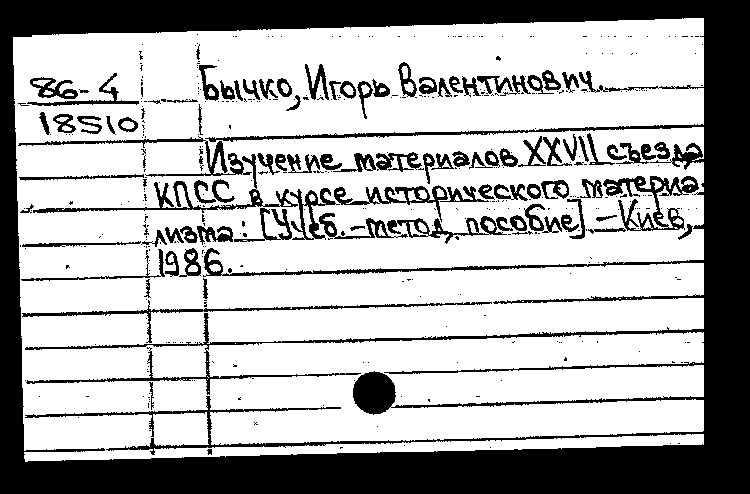 86-4
18510
Бычко, Игорь Валентинович.
Изучение материалов XXVII съезда
КПСС в курсе исторического материа-
лизма: [Учеб.-метод. пособие]. – Киев,
1986.